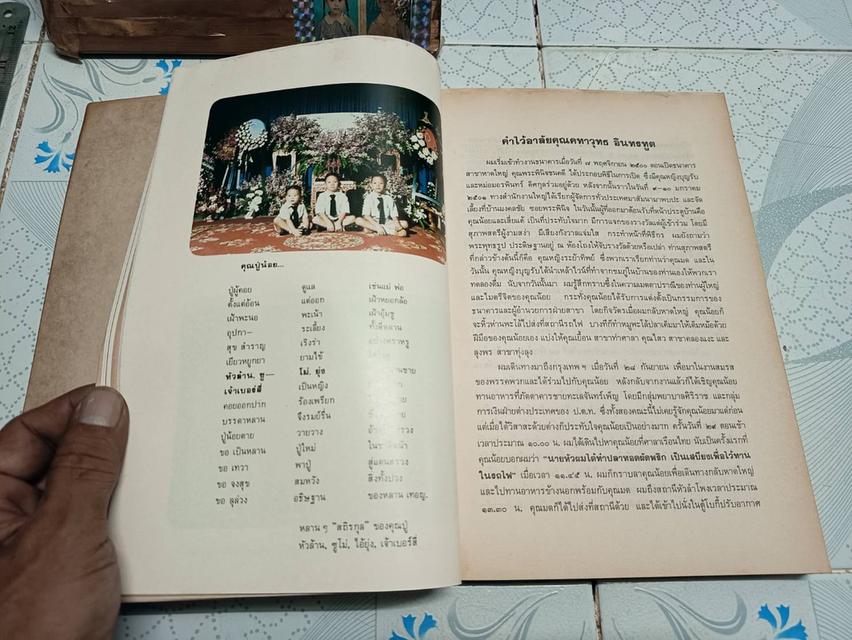 คุณปู่น้อย...
ปู่ผู้คอย ดูแล เช่นแม่ พ่อ
ตั้งแต่อ้อน แต่ออก เฝ้าหยอกล้อ
เฝ้าพะนอ พะเน้า เฝ้าอุ้มชู
อุปกา- ระเลี้ยง ทั้งสี่หลาน
สุข สำราญ เริงร่า
เยียวหยูกยา ยามไข้
หัวล้าน, ซู- โม่, ยุ่ง
เจ้าเบอร์สี่ เป็นหญิง
คอยออกปาก ร้องเพรียก
บรรดาหลาน จึงรมย์รื่น
ปู่น้อยตาย วายวาง
ขอ เป็นหลาน ปู่ใหม่
ขอ เทวา พาปู่ สู่แดนสรวง
ขอ จงสุข สมหวัง สิ่งทั้งปวง
ขอ ลุล่วง อธิษฐาน ของหลาน เทอญ.
หลาน ๆ "สถิรกุล" ของคุณปู่
หัวล้าน, ซูโม่, ไอ้ยุ่ง, เจ้าเบอร์สี่
คำไว้อาลัยคุณคทาวุทธ อินทรทูต
ผมเริ่มเข้าทำงานธนาคารเมื่อวันที่ ๗ พฤศจิกายน ๒๕๐๐ ตอนเปิดธนาคาร
สาขาหาดใหญ่ คุณพระพินิจชนคดี ได้ประกอบพิธีในการเปิด ซึ่งมีคุณหญิงบุญรับ
และหม่อมอรพินทร์ ดิศกุลร่วมอยู่ด้วย หลังจากนั้นราวในวันที่ ๙-๑๐ มกราคม
๒๕๐๑ ทางสำนักงานใหญ่ได้เรียกผู้จัดการทั่วประเทศมาสัมมนาพบปะ และจัด
เลี้ยงที่บ้านมงคลชัย ซอยพระพินิจ ในวันนั้นผู้ที่ออกมาต้อนรับที่หน้าประตูบ้านคือ
คุณน้อยและเสียแค้ เป็นที่ประทับใจมาก มีการแจกของรางวัลแด่ผู้เข้าร่วม โดยมี
สุภาพสตรีผู้งามสง่า มีเสียงกังวาลแจ่มใส กระทำหน้าที่พิธีกร ผมยังถามว่า
พระพุทธรูป ประดิษฐานอยู่ ณ ห้องโถงให้จับรางวัลด้วยหรือเปล่า ท่านสุภาพสตรี
ที่กล่าวข้างต้นนี้ก็คือ คุณหญิงระย้าทิพย์ ซึ่งพวกเราเรียกท่านว่าคุณมด และใน
วันนั้น คุณหญิงบุญรับได้นำเหล้าไวน์ที่ทำจากชมภู่ในบ้านของท่านเองให้พวกเรา
ทดลองดื่ม นับจากวันนั้นมา ผมรู้สึกทราบซึ้งในความเมตตาปราณีของท่านผู้ใหญ่
และไมตรีจิตของคุณน้อย กระทั่งคุณน้อยได้รับการแต่งตั้งเป็นกรรมการของ
ธนาคารและผู้อำนวยการฝ่ายสาขา โดยกิจวัตรเมื่อผมกลับหาดใหญ่ คุณน้อยก็
จะหิ้วห่านพะโล้ไปส่งที่สถานีรถไฟ บางทีก็ทำหมูพะโล้ปลาเค็มมาให้เต็มหม้อด้วย
ฝีมือของคุณน้อยเอง แบ่งให้คุณเยื้อน สาขาท่าศาลา คุณไสว สาขาคลองแงะ และ
ลุงพร สาขาทุ่งลุง
ผมเดินทางมาถึงกรุงเทพ ฯ เมื่อวันที่ ๒๘ กันยายน เพื่อมาในงานสมรส
ของพรรคพวกและได้ร่วมไปกับคุณน้อย หลังกลับจากงานแล้วก็ได้เชิญคุณน้อย
ทานอาหารที่ภัตตาคารชายทะเลจันทร์เพ็ญ โดยมีกลุ่มพยาบาลศิริราช และกลุ่ม
การเงินฝ่ายต่างประเทศของ ป.ต.ท. ซึ่งทั้งสองคณะนี้ไม่เคยรู้จักคุณน้อยมาแต่ก่อน
แต่เมื่อได้วิสาสะด้วยต่างก็ประทับใจคุณน้อยเป็นอย่างมาก ครั้นวันที่ ๒๙ ตอนเช้า
เวลาประมาณ ๑๐.๐๐ น. ผมได้เดินไปหาคุณน้อยที่ศาลาเรือนไทย นับเป็นครั้งแรกที่
คุณน้อยบอกผมว่า "นายหัวผมได้ทำปลาทอดผัดพริก เป็นเสบียงเพื่อไว้ทาน
ในรถไฟ" เมื่อเวลา ๑๑.๔๕ น. ผมก็กราบลาคุณน้อยเพื่อเดินทางกลับหาดใหญ่
และไปทานอาหารข้างนอกพร้อมกับคุณมด ผมถึงสถานีหัวลำโพงเวลาประมาณ
๑๓.๓๐ น. คุณมดก็ได้ไปส่งที่สถานีด้วย และได้เข้าไปนั่งในตู้โบกี้ปรับอากาศ